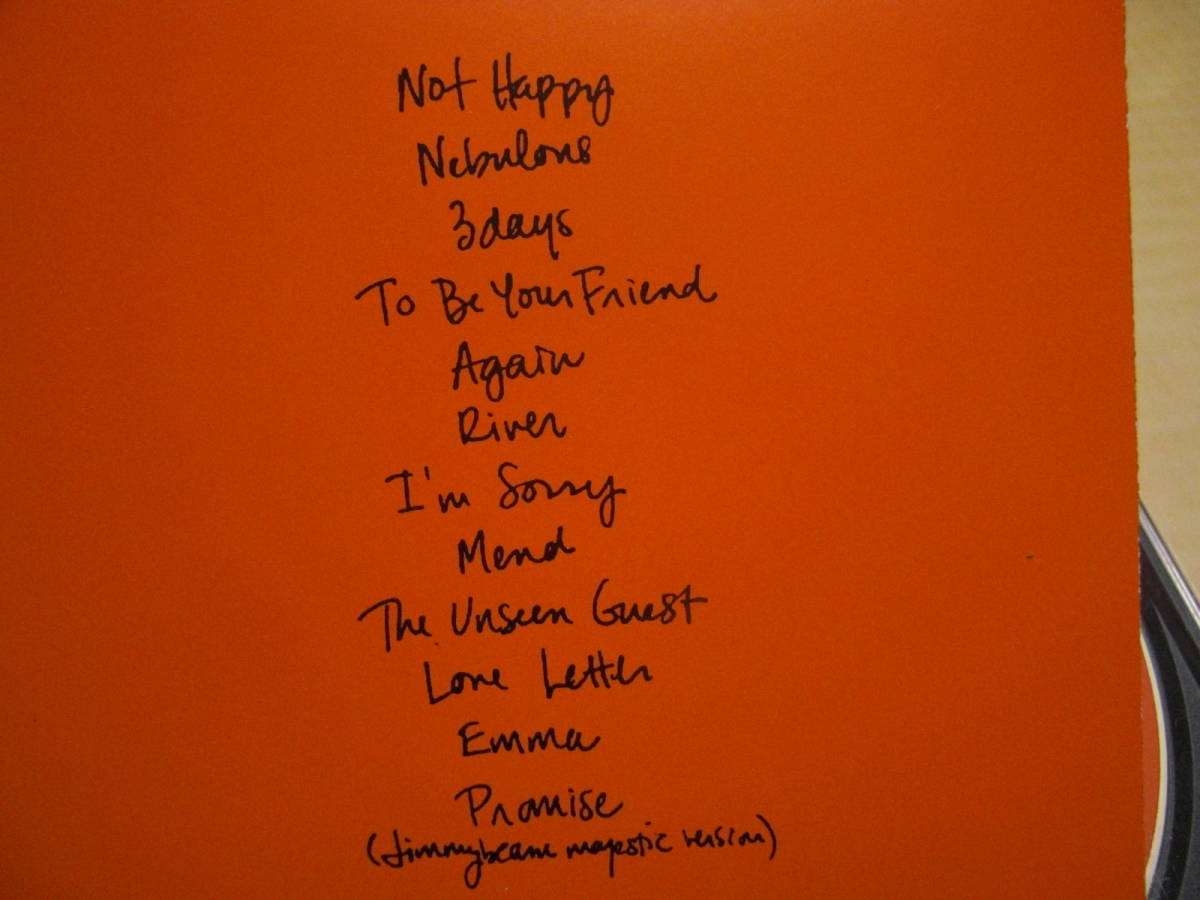 Not Happy
Nebulous
3days
To Be Your Friend
Again
River
I'm Sorry
Mend
The Unseen Guest
Love Letter
Emma
Promise
(Jimmybeam majestic version)